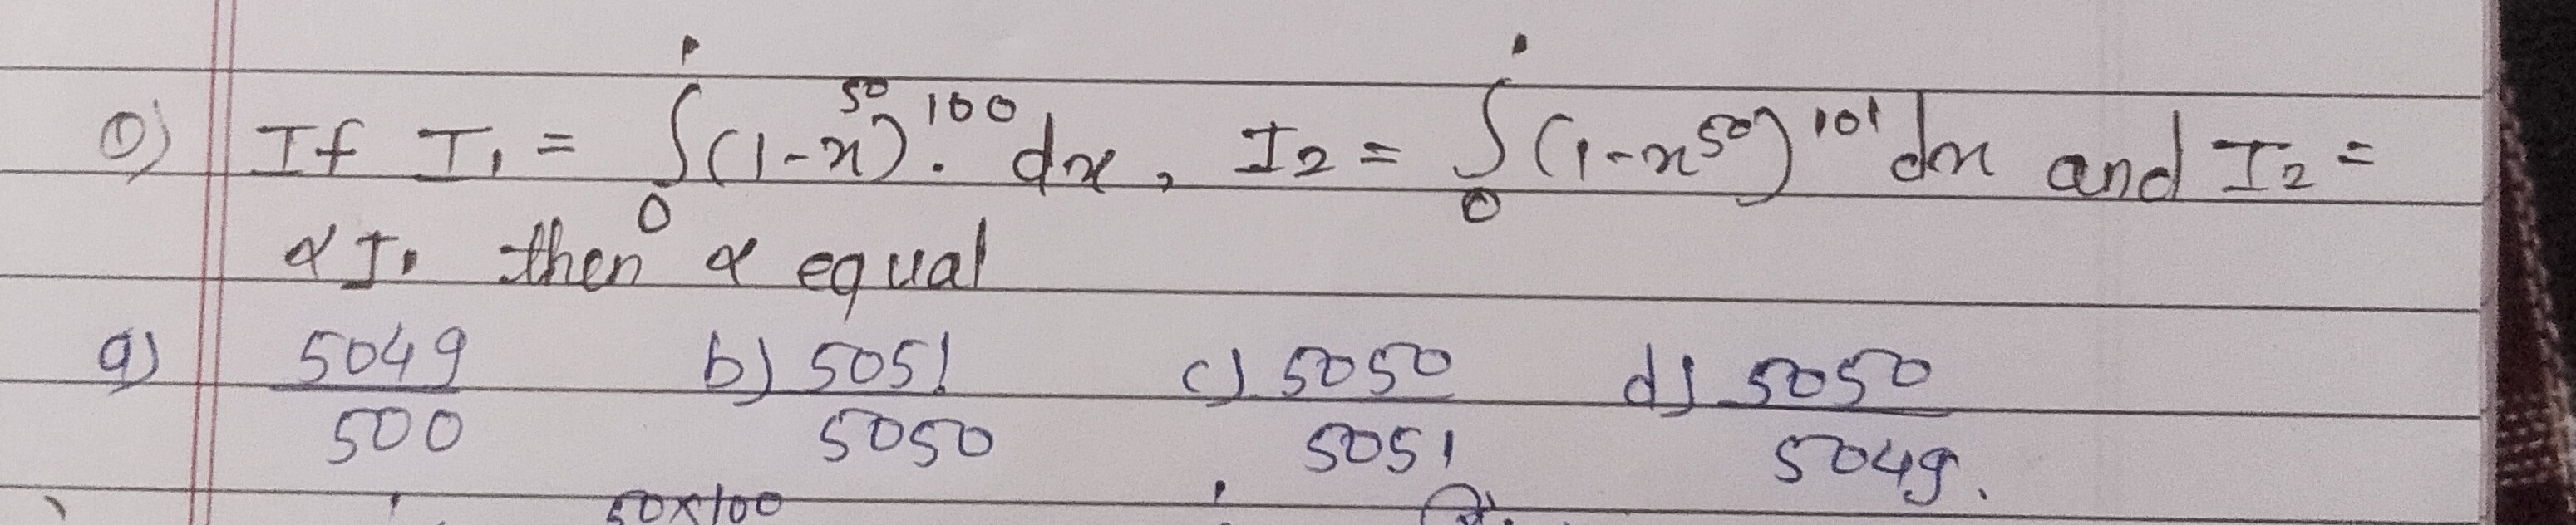 0) If I₁ = ∫₀¹ (1-x⁵⁰)·¹⁰⁰ dx, I₂ = ∫₀¹ (1-x⁵⁰)¹⁰¹ dx and I₂ =
αI₁ then α equal
a) 5049/500 b) 5051/5050 c) 5050/5051 d) 5050/5049.
50x100